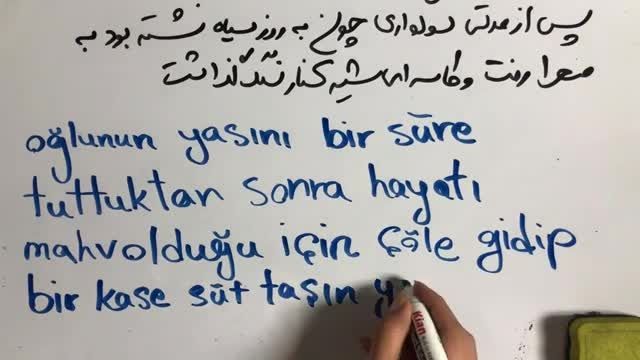 پس از مدتی سوگواری چون به روز سیاه نشسته بود به
صحرا رفت و کاسه ای شیر کنار سنگ گذاشت
oğlunun yasını bir süre
tuttuktan sonra hayatı
mahvolduğu için çöle gidip
bir kase süt taşın y
Kian